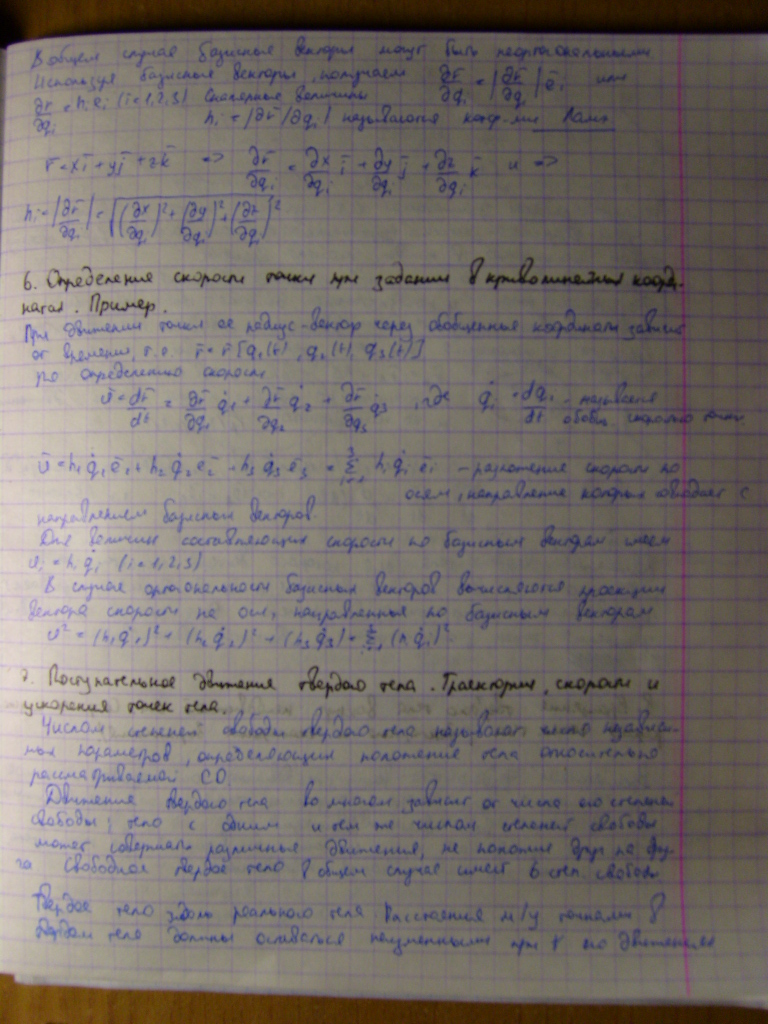 В общем случае базисные векторы могут быть неортогональными
Используя базисные векторы, получаем ∂r̄/∂qᵢ = |∂r̄/∂qᵢ| ēᵢ или
∂r̄/∂qᵢ = hᵢeᵢ (i=1,2,3) Скалярные величины
hᵢ = |∂r̄/∂qᵢ| называются коэф-ми Ламэ
r̄ = xī + yj̄ + zk̄ => ∂r̄/∂qᵢ = ∂x/∂qᵢ ī + ∂y/∂qᵢ j̄ + ∂z/∂qᵢ k̄ и =>
hᵢ = |∂r̄/∂qᵢ| = √((∂x/∂qᵢ)² + (∂y/∂qᵢ)² + (∂z/∂qᵢ)²
6. Определение скорости точки при задании в криволинейных коорди-
натах. Пример.
При движении точки ее радиус-вектор через обобщенные координаты зависит
от времени, т.е. r̄ = r̄ [q₁(t), q₂(t), q₃(t)]
по определению скорости
v̄ = dr̄/dt = ∂r̄/∂q₁ q̇₁ + ∂r̄/∂q₂ q̇₂ + ∂r̄/∂q₃ q̇₃, где q̇ᵢ = dqᵢ/dt - называется
обобщ. скоростью точки.
v̄ = h₁q̇₁ē₁ + h₂q̇₂ē₂ + h₃q̇₃ē₃ = Σ³ᵢ₌₁ hᵢq̇ᵢēᵢ - разложение скорости по
осям, направление которых совпадает с
направлением базисных векторов.
Для величин составляющих скорости по базисным векторам имеем
vᵢ = hᵢq̇ᵢ (i=1,2,3)
В случае ортогональности базисных векторов вычисляются проекции
вектора скорости на оси, направленные по базисным векторам
v² = (h₁q̇₁)² + (h₂q̇₂)² + (h₃q̇₃)² = Σ³ᵢ₌₁ (hᵢq̇ᵢ)²
7. Поступательное движения твердого тела. Траектории, скорости и
ускорения точек тела.
Числом степеней свободы твердого тела называют число независи-
мых параметров, определяющих положение тела относительно
рассматриваемой СО
Движения твердого тела во многом зависит от числа его степеней
свободы; тело с одним и тем же числом степеней свободы
может совершать различные движения, не похожие друг на дру-
га Свободное твердое тело в общем случае имеет 6 степ. свободы
Твердое тело реального тела. Расстояния м/у точками в
твердом теле должны оставаться неизменными при его движениях